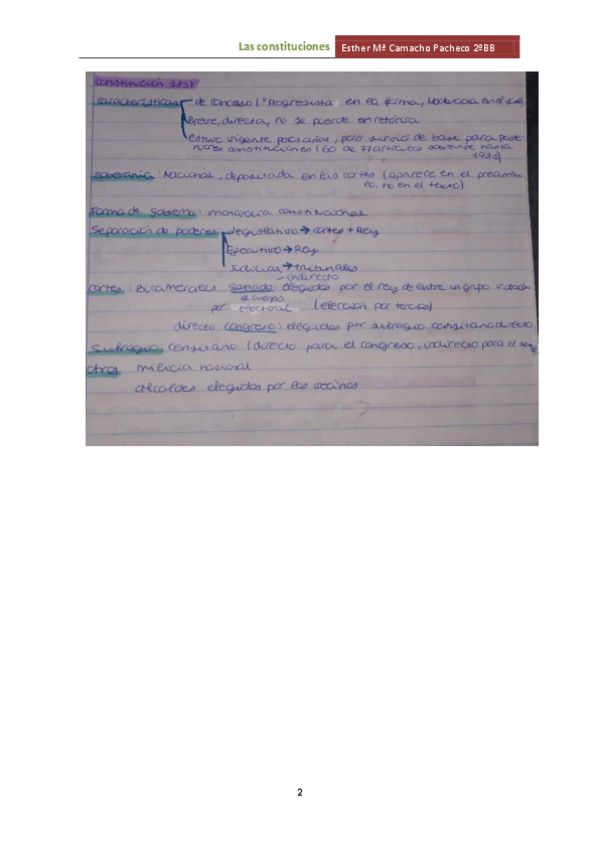 Las constituciones Esther Mª Camacho Pacheco 2ºBB
Constitución 1837
características de consenso ("Progresista en la forma, Moderada en el
Breve, directa, no se pierde en retórica
estuvo vigente pocos años, pero sirvió de base para poste
riores constituciones (60 de 77 artículos sobrevive hasta
1931)
Soberanía: Nacional, depositada en las cortes (aparece en el preámbu
lo, no en el texto)
Forma de gobierno: monarquía constitucional
Separación de poderes: Legislativo → Cortes + Rey
Ejecutivo → Rey
Judicial → tribunales
indirecto
Cortes: Bicamerales Senado: elegidos por el rey de entre un grupo
el cuerpo
por electoral (elección por tercios)
directo Congreso: elegidos por sufragio censitario directo
Sufragio: censitario (directo para el congreso, indirecto para el
Otros milicia nacional
alcaldes elegidos por los vecinos
2